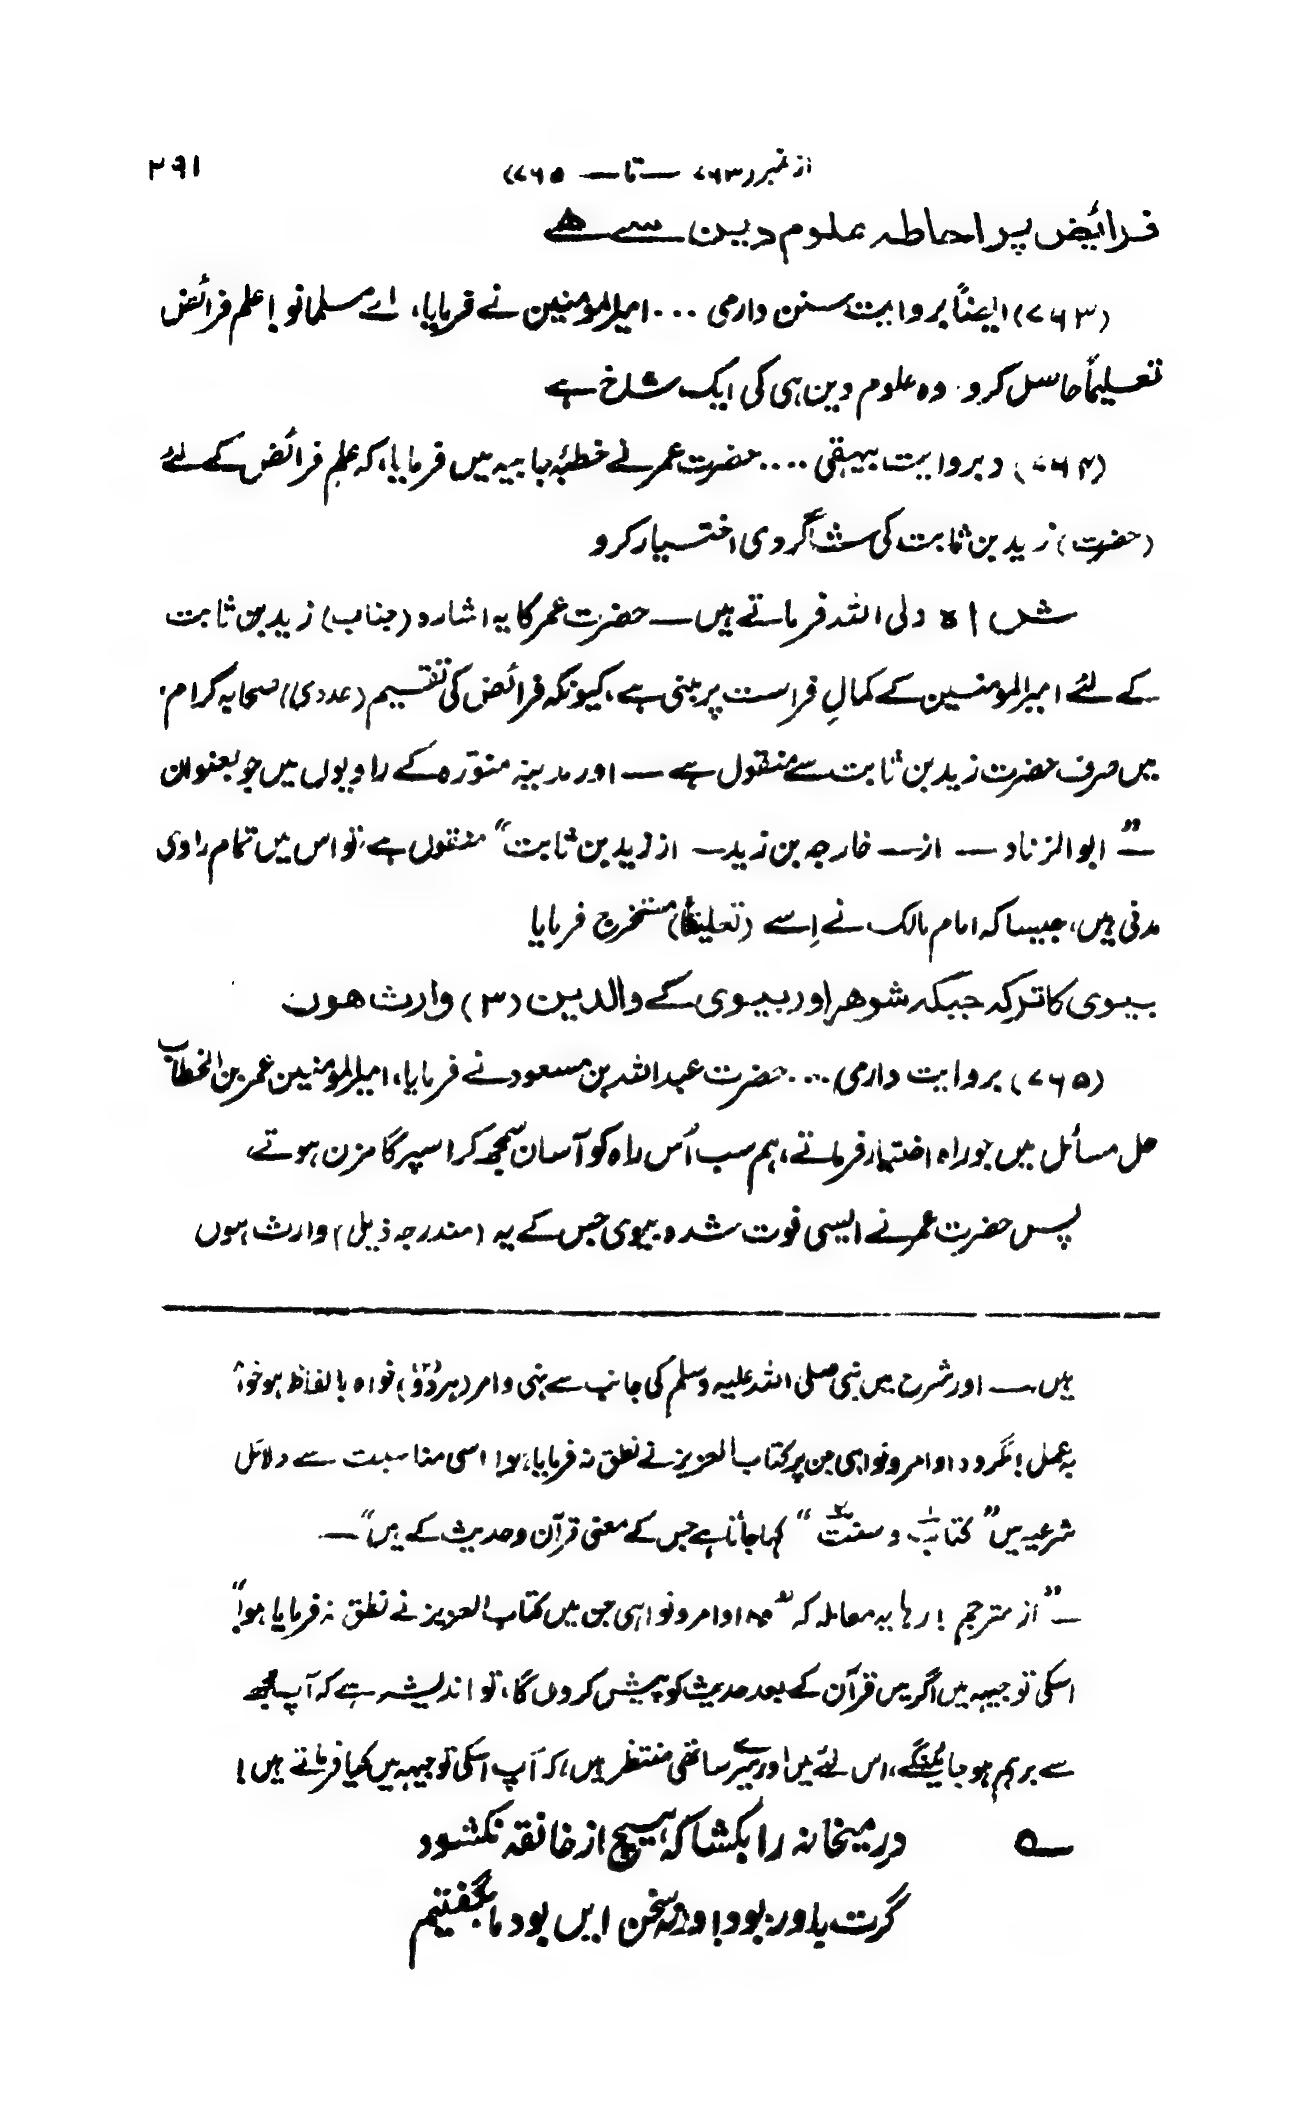 از نمبر (۷۶۳ — تا — ۷۶۵) ۲۹۱
فرائیض پر احاطہ علوم دین سے ہے
(۷۶۳) ایضاً بروایت سنن دارمی ... امیرالمومنین نے فرمایا، اے مسلمانو! علم فرائض
تعلیماً حاصل کرو. وہ علوم دین ہی کی ایک شاخ ہے
(۷۶۴) و بروایت بیہقی .... حضرت عمر نے خطبۂ جابیہ میں فرمایا، کہ علمِ فرائض کے لئے
(حضرت) زید بن ثابت کی شاگردی اختیار کرو
ش اہ ولی اللہ فرماتے ہیں — حضرت عمر کا یہ اشارہ (جناب) زید بن ثابت
کے لئے امیرالمومنین کے کمالِ فراست پر مبنی ہے، کیونکہ فرائض کی تقسیم (عددی) صحابہ کرام
میں صرف حضرت زید بن ثابت سے منقول ہے — اور مدینہ منوّرہ کے راویوں میں جو بعنوان
— ”ابوالزناد — از — خارجہ بن زید — از زید بن ثابت“ منقول ہے، تو اس میں تمام راوی
مدنی ہیں، جیسا کہ امام مالک نے اِسے (تعلیقاً) مستخرج فرمایا
بیوی کا ترکہ جبکہ شوہر اور بیوی کے والدین (۳) وارث ہوں
(۷۶۵) بروایت دارمی .... حضرت عبداللہ بن مسعود نے فرمایا، امیرالمومنین عمر بن الخطاب
حل مسائل میں جو راہ اختیار فرماتے، ہم سب اُس راہ کو آسان سمجھ کر اسپر گامزن ہوتے
پس حضرت عمر نے ایسی فوت شدہ بیوی جس کے یہ (مندرجہ ذیل) وارث ہوں
ہیں — اور شرح میں نبی صلی اللہ علیہ وسلم کی جانب سے نہی و امر (ہر دُوؤ) خواہ بالفاظ ہو خواہ
بہ عمل! مگر وہ اوامر و نواہی جن پر کتاب العزیز نے نطق نہ فرمایا ہو! اسی مناسبت سے دلائل
شرعیہ میں ”کتاب و سنت“ کہا جاتا ہے جس کے معنی قرآن و حدیث کے ہیں“ —
— ”از مترجم! رہا یہ معاملہ کہ ”وہ اوامر و نواہی جن میں کتاب العزیز نے نطق نہ فرمایا ہو!“
اسکی توجیہہ میں اگر میں قرآن کے بعد حدیث کو پیش کروں گا، تو اندیشہ ہے کہ آپ مجھ
سے برہم ہو جائینگے، اس لئے میں اور میرے ساتھی منتظر ہیں، کہ آپ اسکی توجیہہ میں کیا فرماتے ہیں!
ـــہ درمیخانہ را بکشا کہ ہیچ از خانقہ نکشود
گرت باور بود اور نہ سخن ایں بود ما بگفتیم